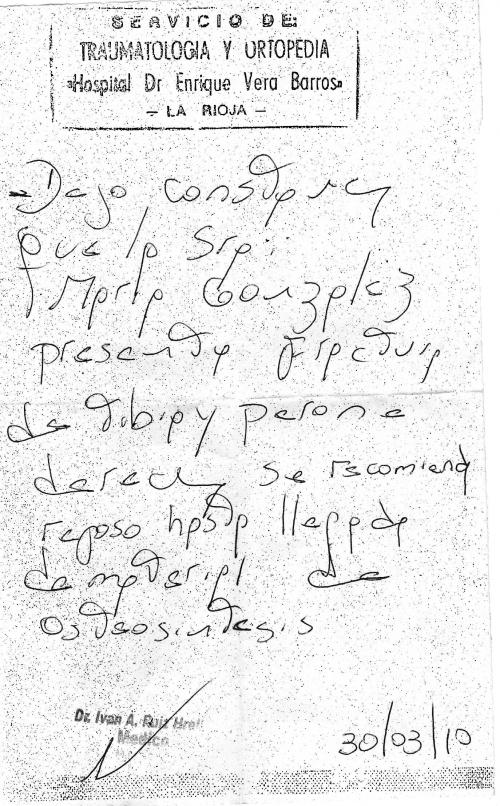 SERVICIO DE:
TRAUMATOLOGIA Y ORTOPEDIA
"Hospital Dr Enrique Vera Barros"
- LA RIOJA -
- Dejo constancia
que la Sra:
Maria Gonzalez
presenta fractura
de tibia y perone
derecha se recomienda
reposo hasta llegada
de material de
osteosintesis
Dr. Ivan A. Ruiz
Medico
30/03/10